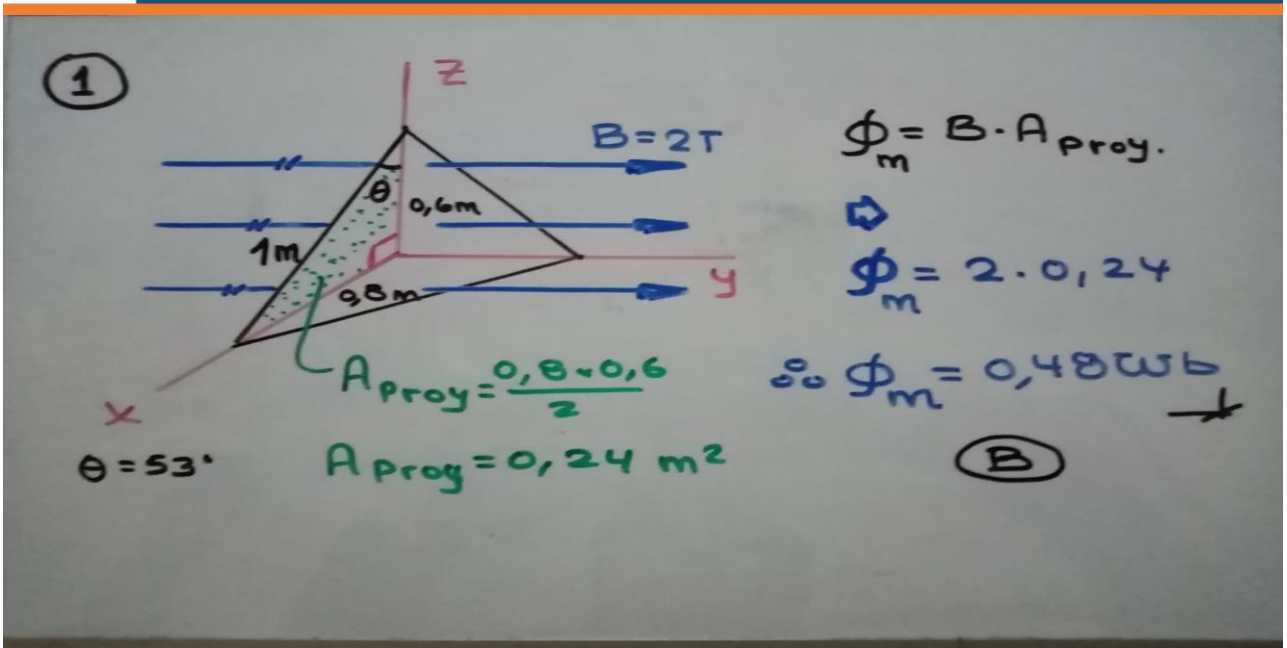 1
z
B = 2T
θ
0,6m
1m
0,8m
y
x
θ = 53°
A proy = 0,8 × 0,6 / 2
A proy = 0,24 m²
Φm = B · A proy.
⇨
Φm = 2 · 0,24
∴ Φm = 0,48 Wb
B